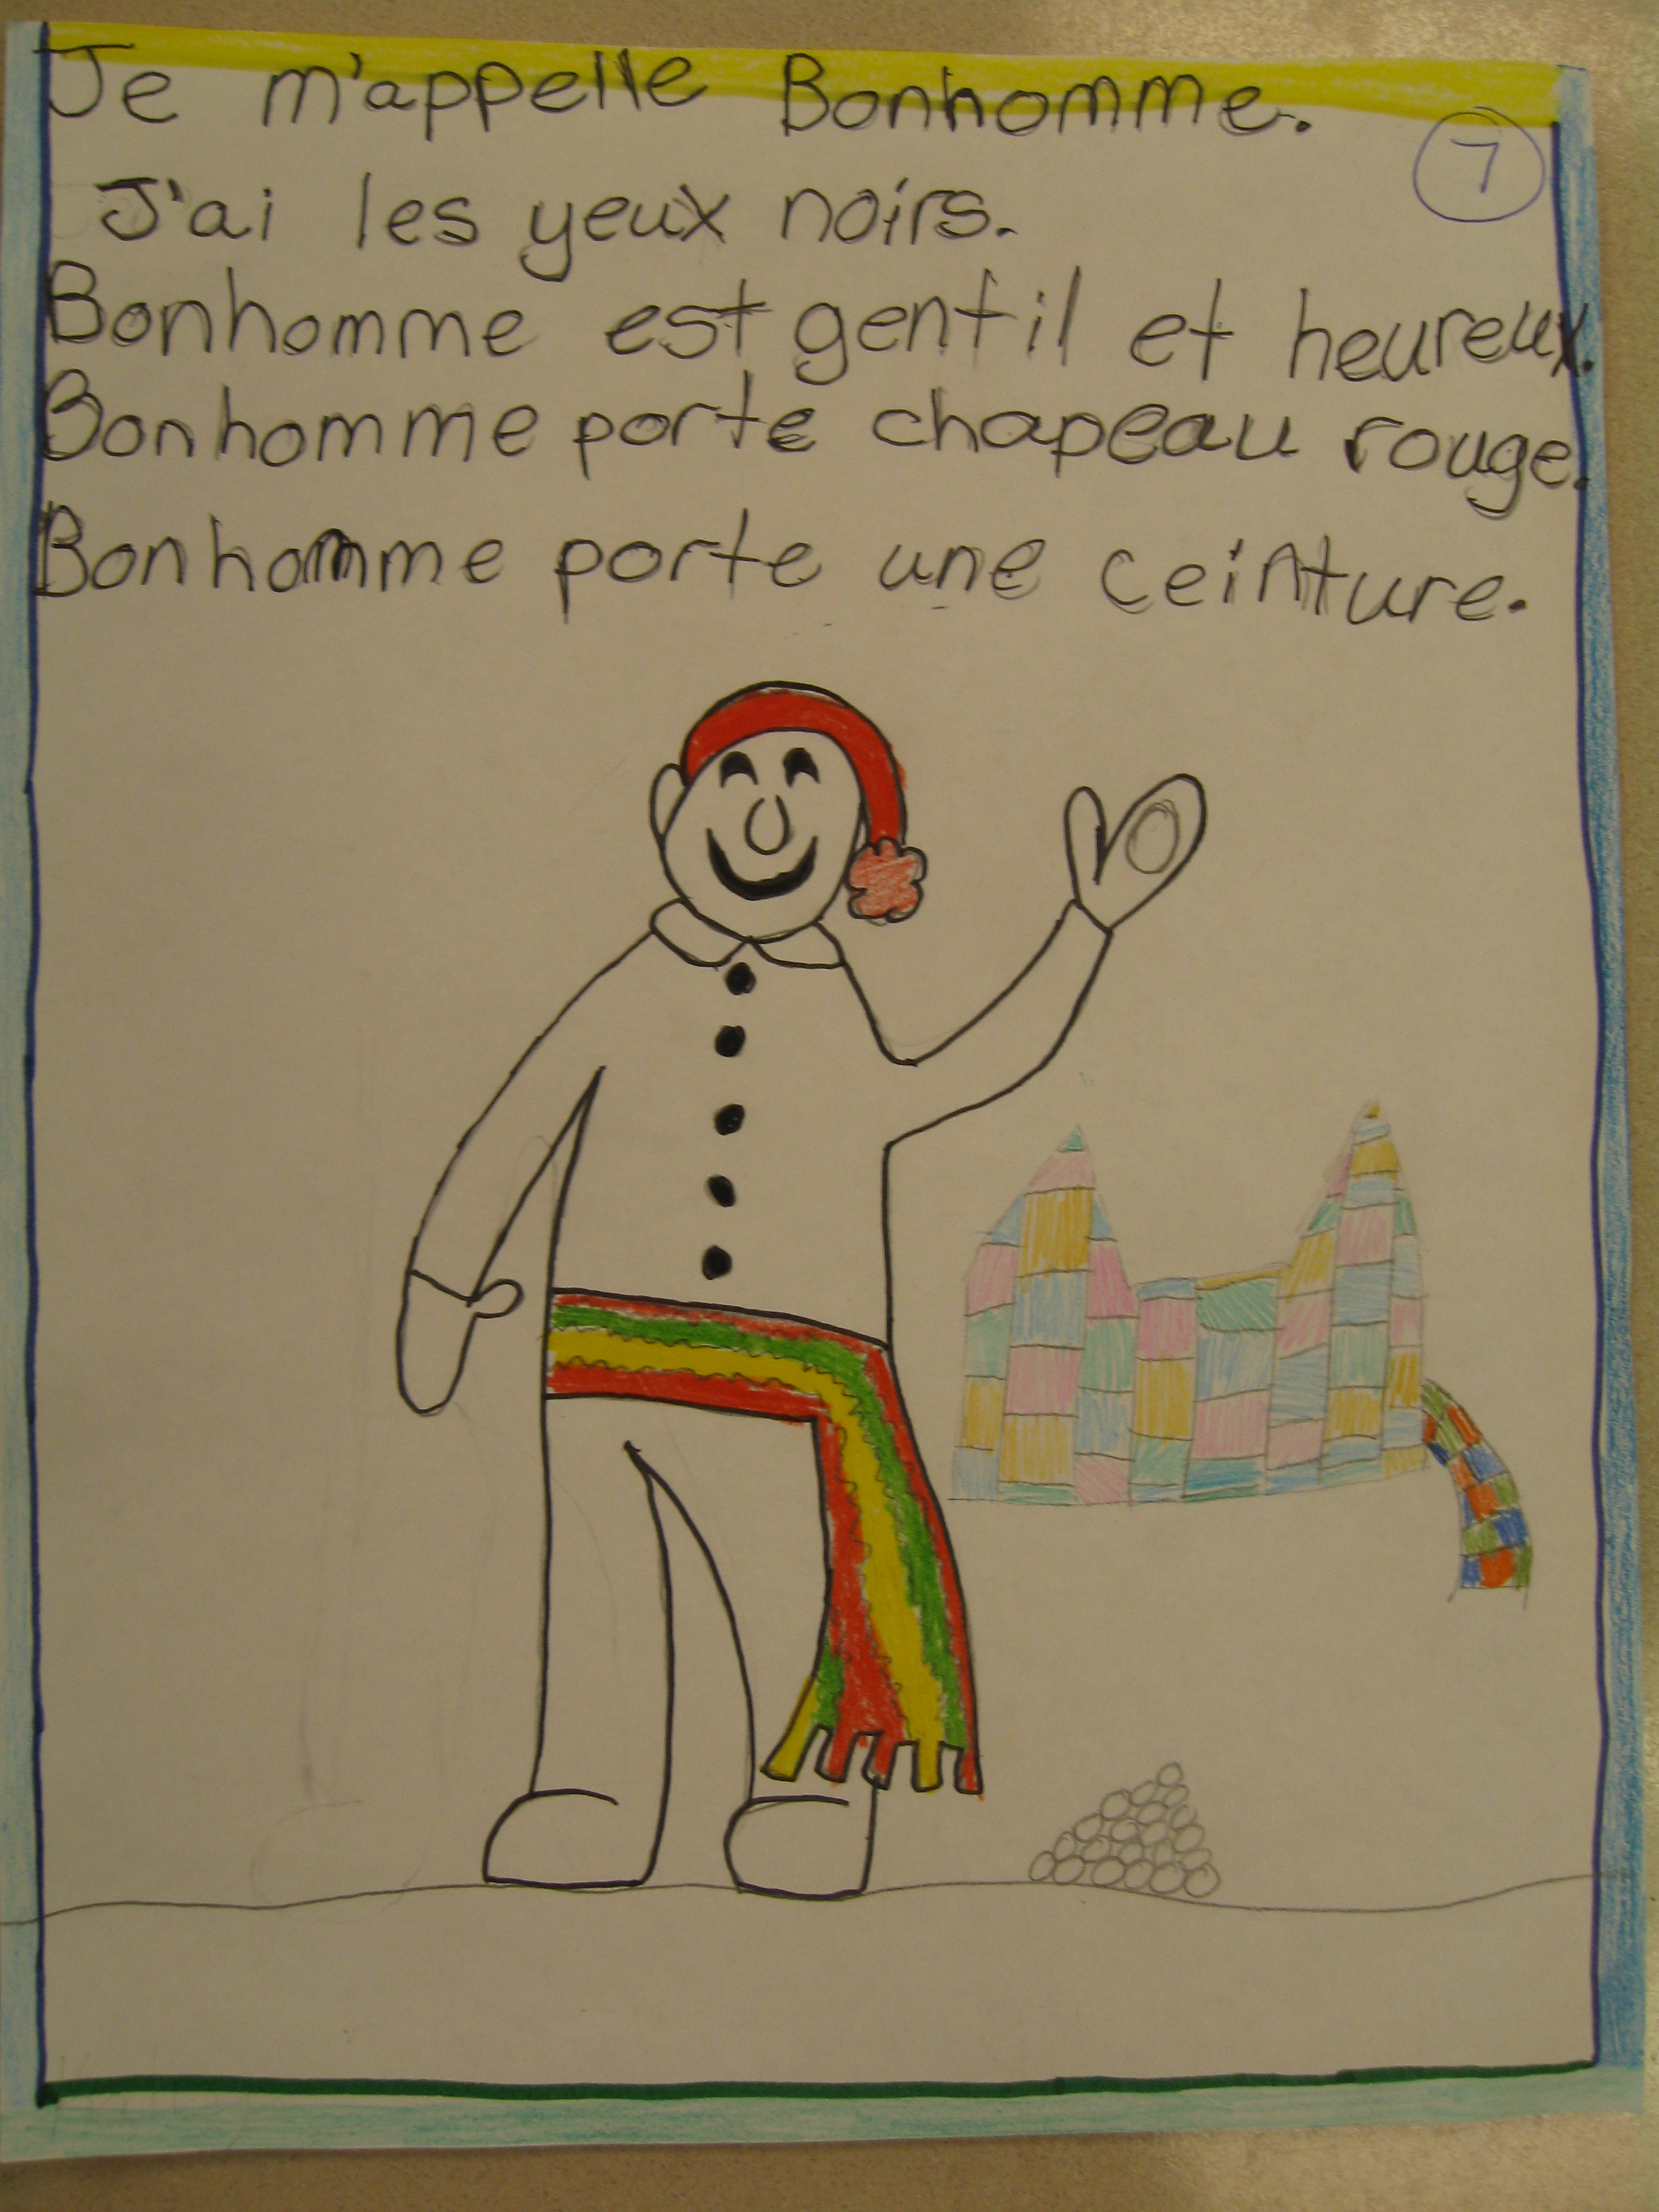 Je m'appelle Bonhomme.
7
J'ai les yeux noirs.
Bonhomme est gentil et heureux.
Bonhomme porte chapeau rouge.
Bonhomme porte une ceinture.